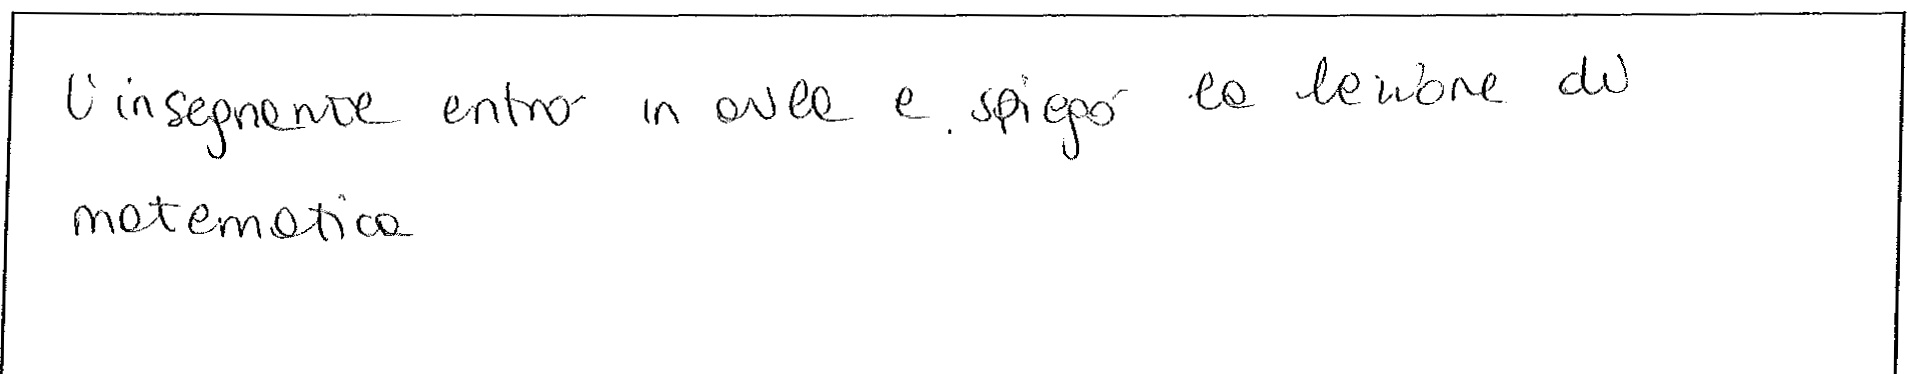 L'insegnante entrò in aula e spiegò la lezione di
matematica